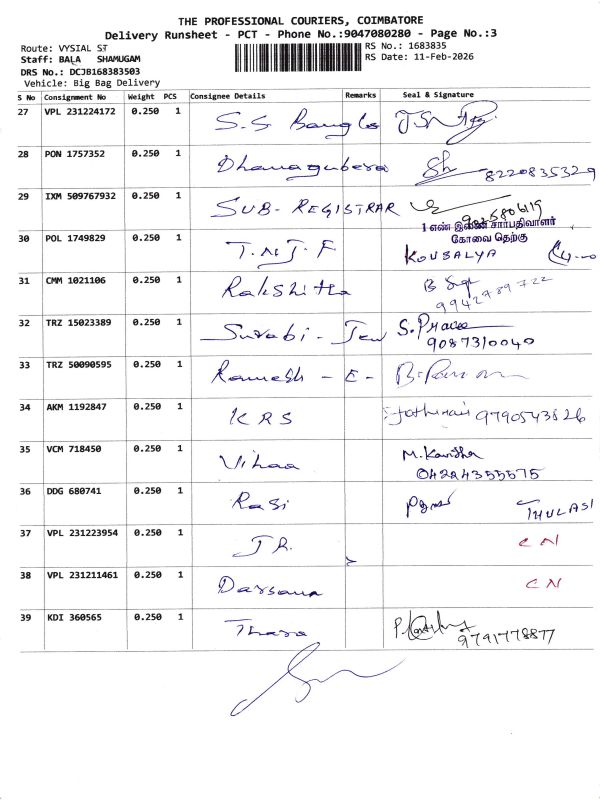 THE PROFESSIONAL COURIERS, COIMBATORE
Delivery Runsheet - PCT - Phone No.:9047080280 - Page No.:3
Route: VYSIAL ST
RS No.: 1683835
Staff: BALA SHAMUGAM
RS Date: 11-Feb-2026
DRS No.: DCJB168383503
Vehicle: Big Bag Delivery
S No Consignment No Weight PCS Consignee Details Remarks Seal & Signature
27 VPL 231224172 0.250 1 S.S Bangles
28 PON 1757352 0.250 1 Dhanagubera Sh 8220835329
29 IXM 509767932 0.250 1 SUB- REGISTRAR
1 எண் இணை சார்பதிவாளர்
கோவை தெற்கு
30 POL 1749829 0.250 1 T.N.J.F KOUSALYA
31 CMM 1021106 0.250 1 Rakshitha
9942789722
32 TRZ 15023389 0.250 1 Surabi - Jew
9087310040
33 TRZ 50090595 0.250 1 Ramesh - E -
34 AKM 1192847 0.250 1 KRS 9790543826
35 VCM 718450 0.250 1 Vihaa M. Kavitha
04224355575
36 DDG 680741 0.250 1 Rasi THULASI
37 VPL 231223954 0.250 1 JR. CN
38 VPL 231211461 0.250 1 Darsana CN
39 KDI 360565 0.250 1 Thara
9791778877